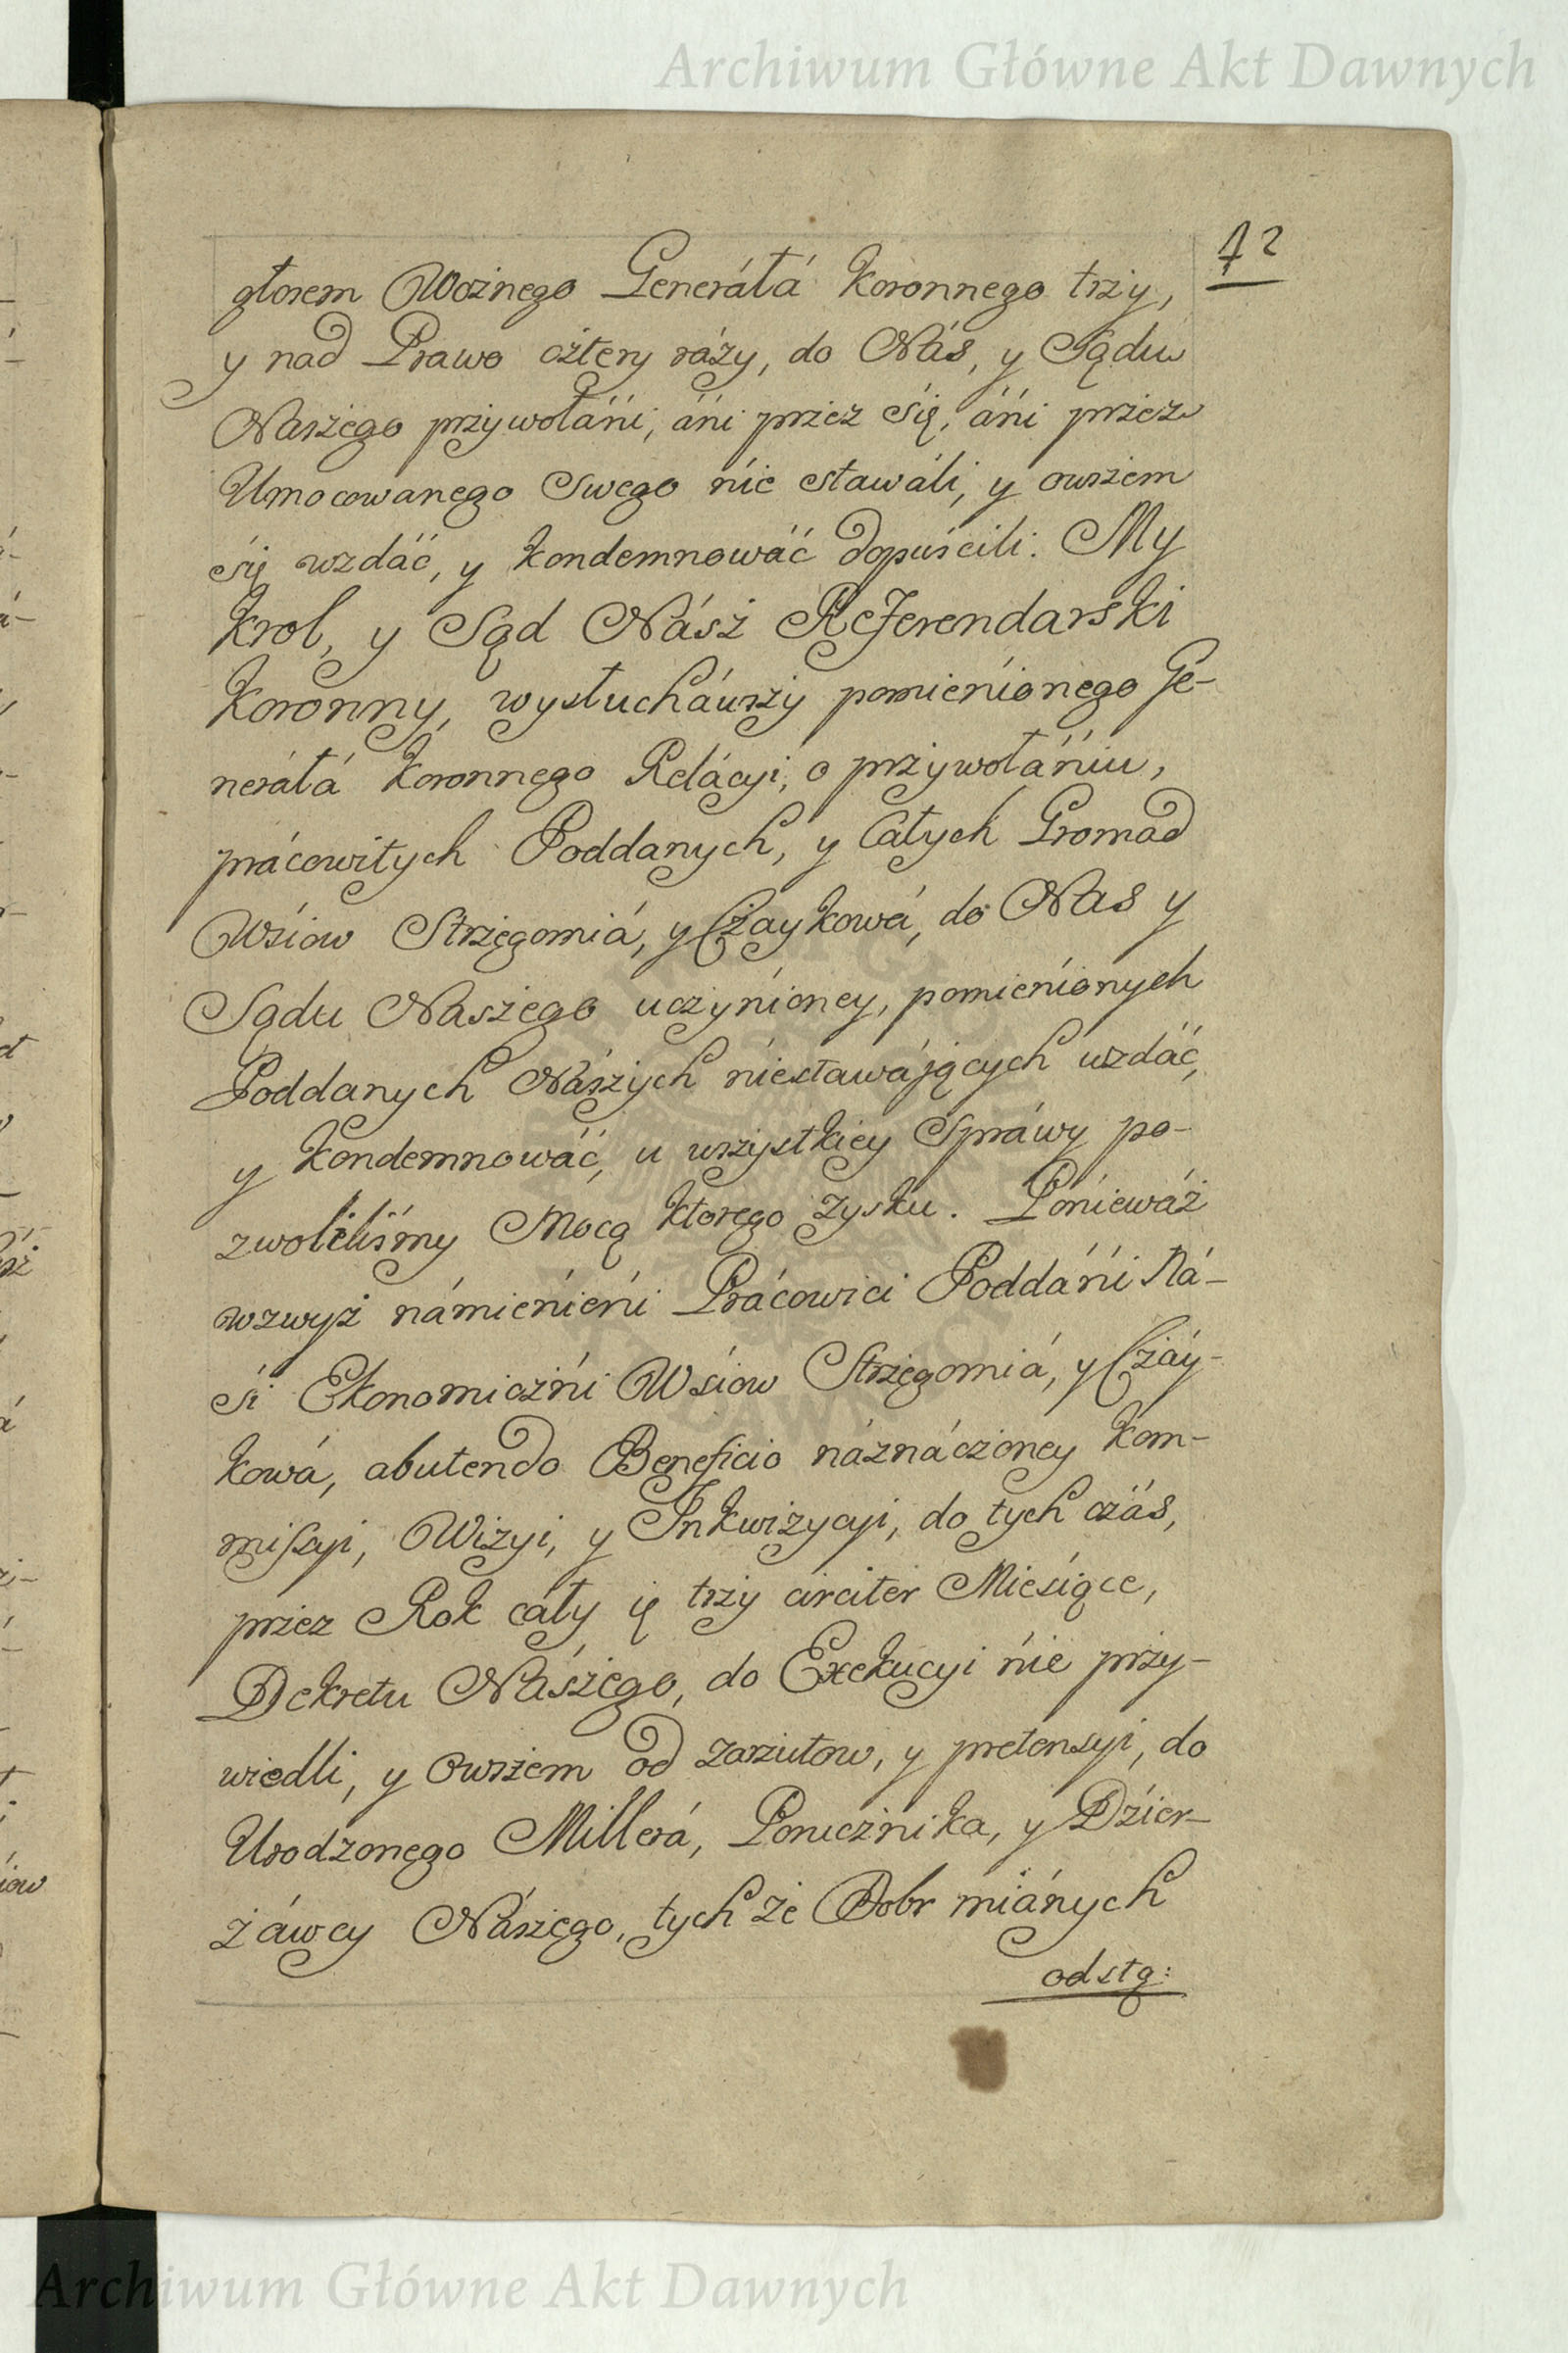 Archiwum Główne Akt Dawnych
12
głosem Woźnego Generáłá Koronnego trzy,
y nad Prawo cztery ráży, do Nás, y Sądu
Naszego przywołáńi, áńi przez śię, áńi przez
Umocowanego Swego nie stawáli, y owszem
śię wzdáć, y kondemnowáć dopuścili. My
Krol, y Sąd Násż Referendarski
Koronny, wysłucháwszy pomienionego Ge-
neráłá Koronnego Relácyi, o przywołáńiu,
prácowitych Poddanych, y Całych Gromad
Wśiow Strzegomiá, y Czaykowá, do Nas y
Sądu Naszego uczynioney, pomienionych
Poddanych Nászych niestawájących wzdáć,
y Kondemnowáć, w wszystkiey Spráwy po-
zwoliliśmy Mocą ktorego zysku. Ponieważ
wzwyż námienieńi Prácowici Poddáńi Ná-
śi Ekonomiczńi Wśiow Strzegomiá, y Czáy-
kowá, abutendo Beneficio náznáczoney Kom-
missyi, Wizyi, y Inkwizycyi, do tych czás,
przez Rok cáły ię trzy circiter Mieśiące,
Dekretu Nászego, do Exekucyi nie przy-
wiedli, y Owszem od zarzutow, y pretensyi, do
Urodzonego Millerá, Porucznika, y Dźier-
żáwcy Nászego, tych że Dobr miánych
odstą:
Archiwum Główne Akt Dawnych